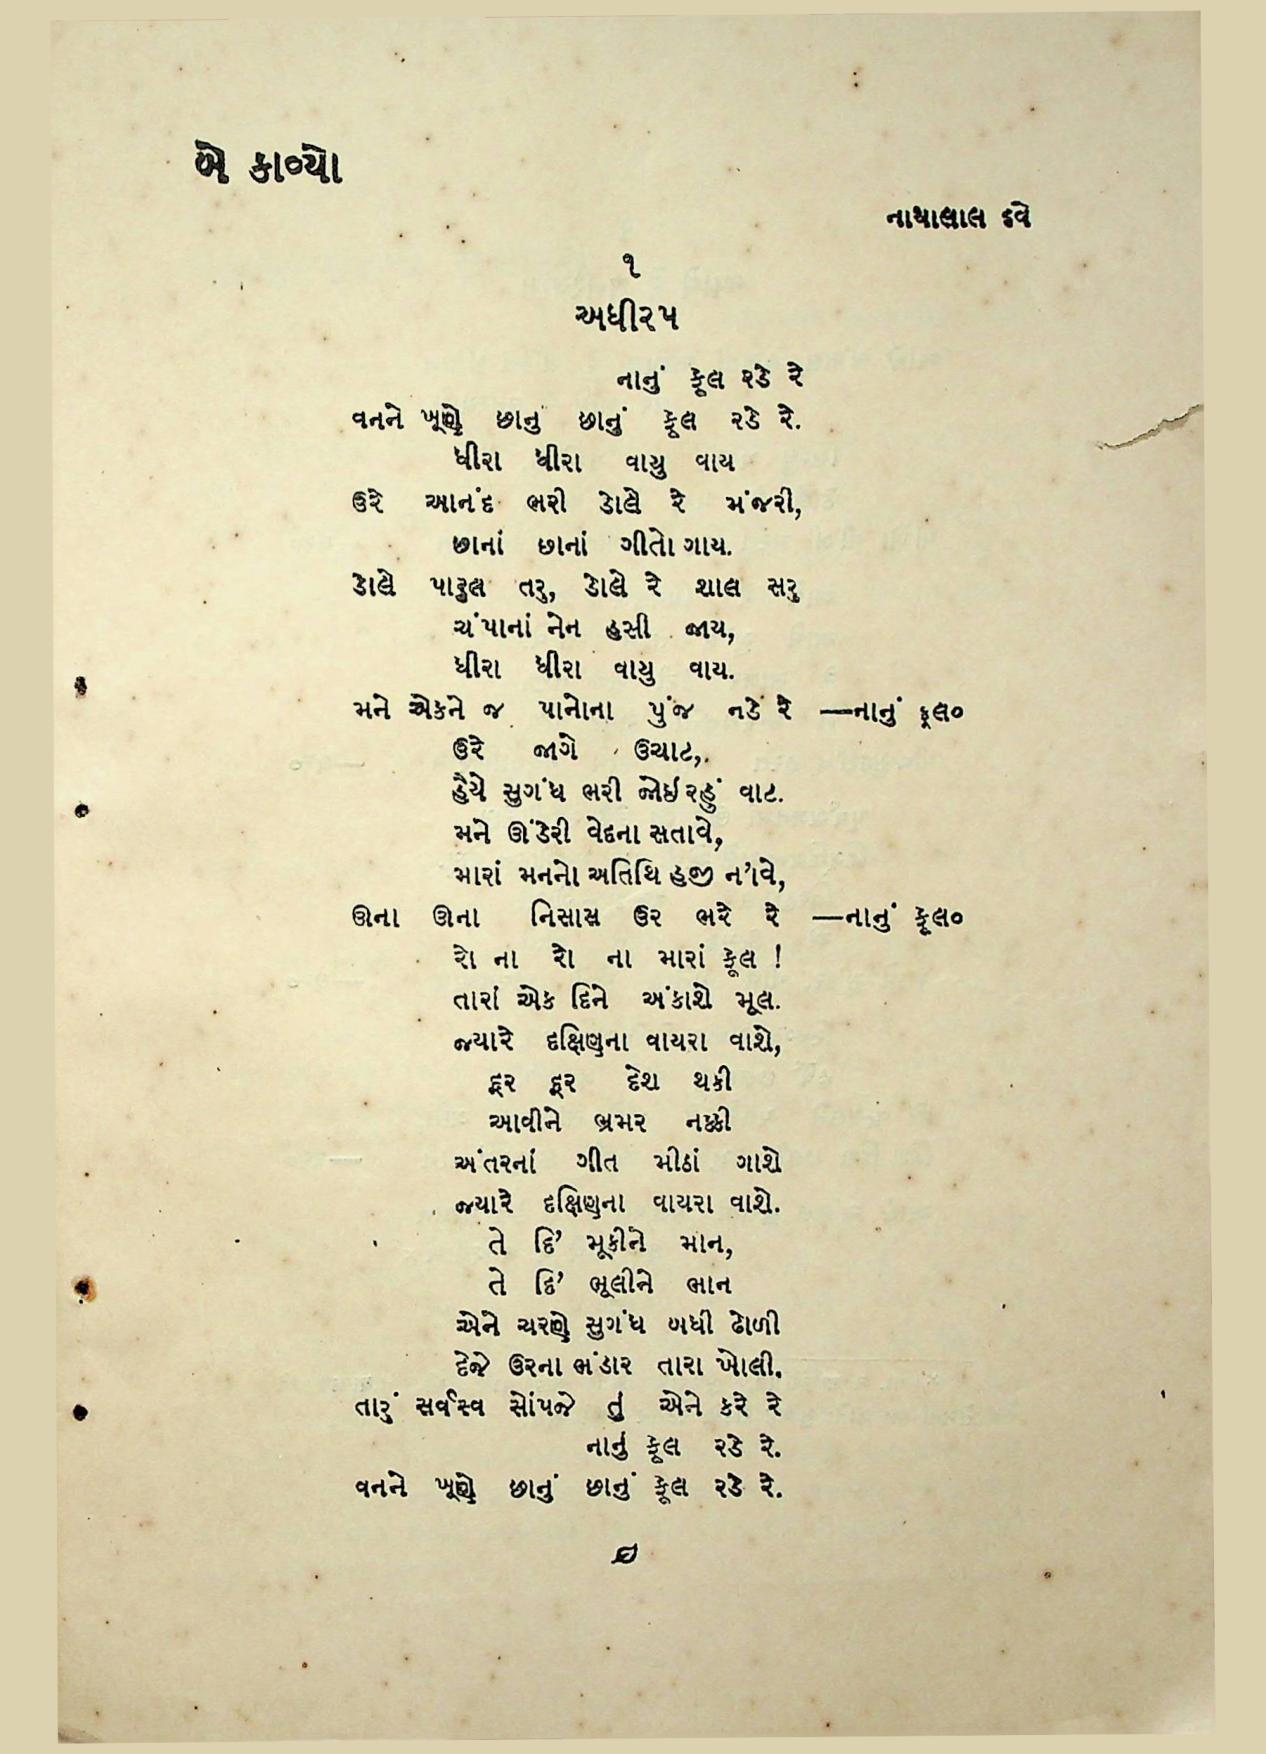 બે કાવ્યો
નાથાલાલ દવે
૧
અધીરપ
નાનું ફૂલ રડે રે
વનને ખૂણે છાનુ છાનું ફૂલ રડે રે.
ધીરા ધીરા વાયુ વાય
ઉરે આનંદ ભરી ડોલે રે મંજરી,
છાનાં છાનાં ગીતો ગાય.
ડોલે પારુલ તરુ, ડોલે રે શાલ સરુ
ચંપાનાં નેન હસી જાય,
ધીરા ધીરા વાયુ વાય.
મને એકને જ પાનોના પુંજ નડે રે —નાનું ફૂલ૦
ઉરે જાગે ઉચાટ,
હૈયે સુગંધ ભરી જોઇ રહું વાટ.
મને ઊંડેરી વેદના સતાવે,
મારાં મનનો અતિથિ હજી ન'ાવે,
ઊના ઊના નિસાસ ઉર ભરે રે —નાનું ફૂલ૦
રો ના રો ના મારાં ફૂલ !
તારાં એક દિને અંકાશે મૂલ.
જ્યારે દક્ષિણના વાયરા વાશે,
દૂર દૂર દેશ થકી
આવીને ભ્રમર નક્કી
અંતરનાં ગીત મીઠાં ગાશે
જ્યારે દક્ષિણના વાયરા વાશે.
તે દિ' મૂકીને માન,
તે દિ' ભૂલીને ભાન
એને ચરણે સુગંધ બધી ઢોળી
દેજે ઉરના ભંડાર તારા ખોલી.
તારું સર્વસ્વ સોંપજે તું એને કરે રે
નાનું ફૂલ રડે રે.
વનને ખૂણે છાનું છાનું ફૂલ રડે રે.